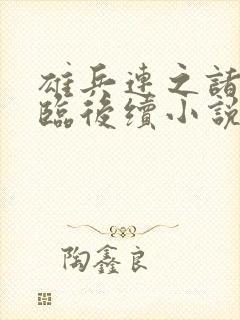 雄兵連之諸
臨後續小說
陶鑫良